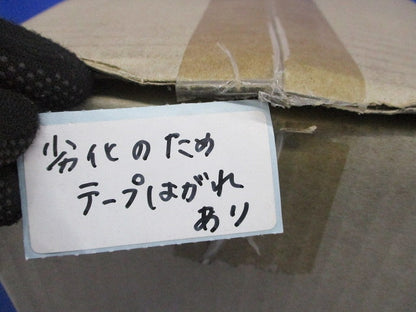 劣化のため
テープはがれ
あり